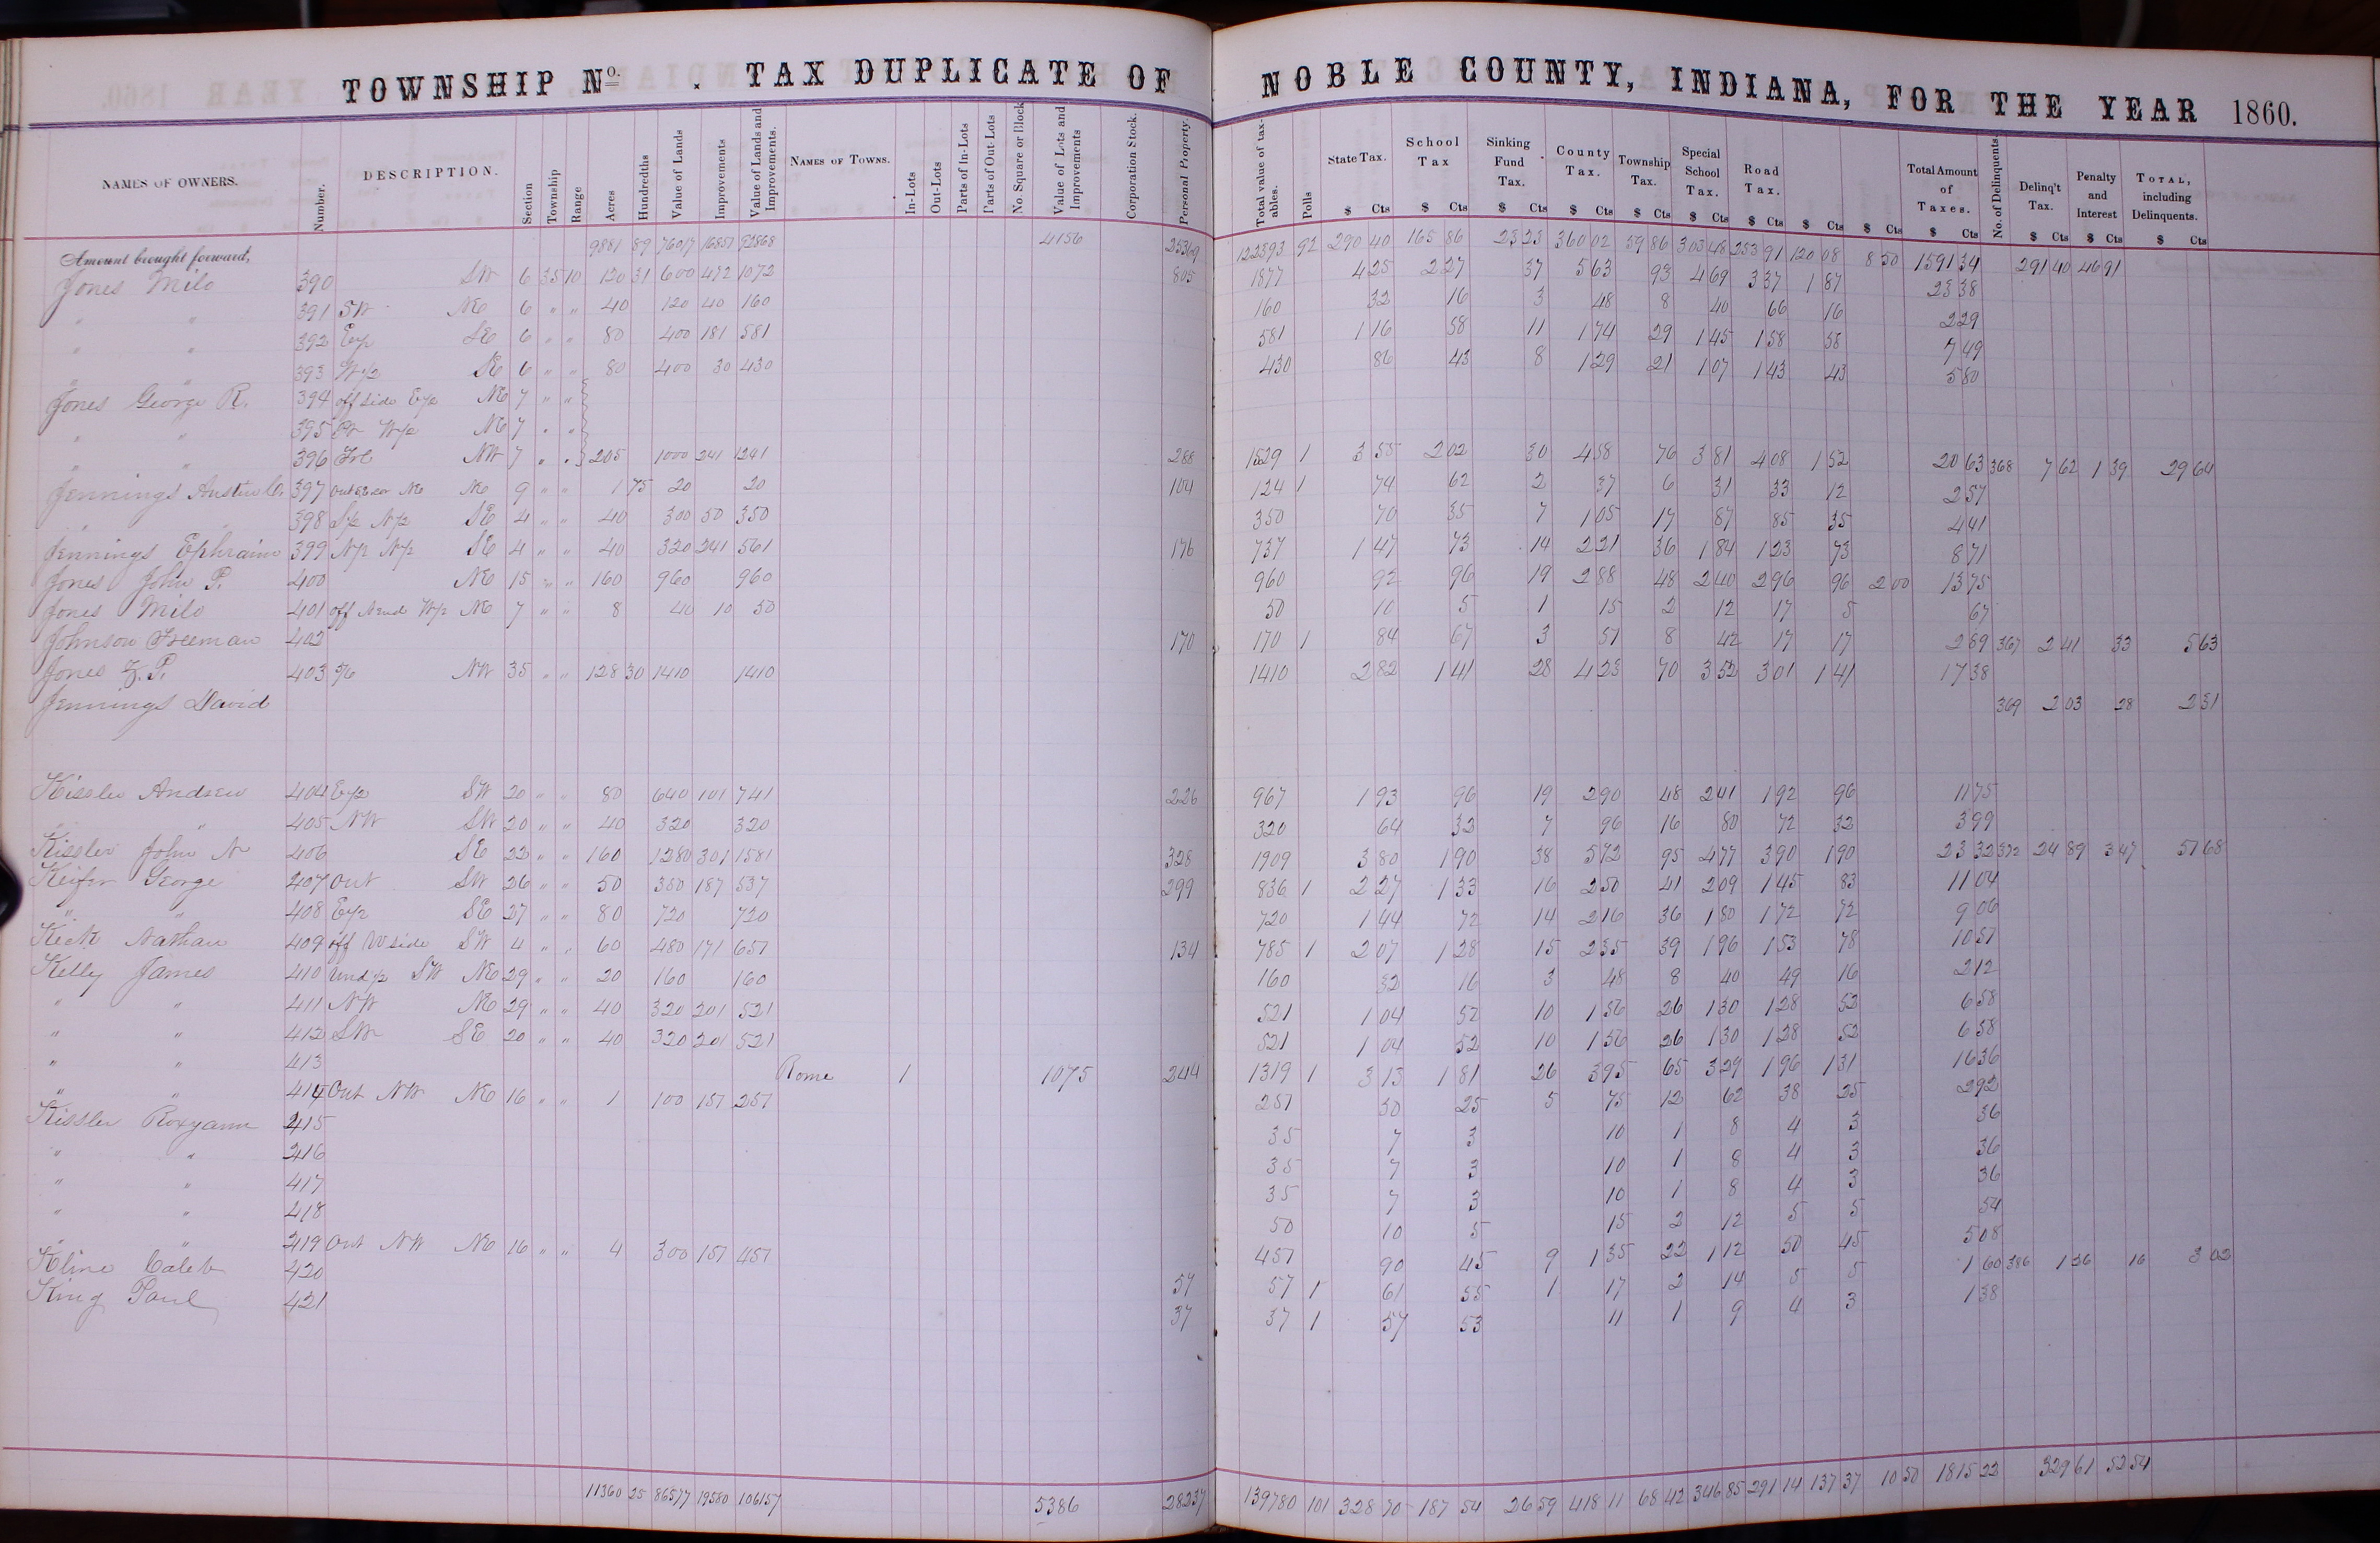 TOWNSHIP No. . TAX DUPLICATE OF NOBLE COUNTY, INDIANA, FOR THE YEAR 1860.
NAMES OF OWNERS. Number. DESCRIPTION. Section Township Range Acres Hundredths Value of Lands Improvements Value of Lands and Improvements. NAMES OF TOWNS. In-Lots Out-Lots Parts of In-Lots Parts of Out-Lots No. Square or Block Value of Lots and Improvements Corporation Stock. Personal Property. Total value of taxables. Polls State Tax. School Tax Sinking Fund Tax. County Tax. Township Tax. Special School Tax. Road Tax. Total Amount of Taxes. No. of Delinquents Delinq't Tax. Penalty and Interest TOTAL, including Delinquents.
$ Cts $ Cts $ Cts $ Cts $ Cts $ Cts $ Cts $ Cts $ Cts $ Cts $ Cts $ Cts $ Cts
Amount brought forward, 9881 89 76017 16851 92868 4156 25369 122393 92 290 40 165 86 23 23 360 02 59 86 303 48 253 91 120 08 8 50 1591 34 291 40 46 91
Jones Milo 390 SW 6 35 10 120 31 600 472 1072 805 1877 4 25 2 27 37 5 63 93 4 69 3 37 1 87 23 38
" " 391 SW NE 6 " " 40 120 40 160 160 32 16 3 48 8 40 66 16 2 29
" " 392 E1/2 SE 6 " " 80 400 181 581 581 1 16 58 11 1 74 29 1 45 1 58 58 7 49
" " 393 W1/2 SE 6 " " 80 400 30 430 430 86 43 8 1 29 21 1 07 1 43 43 5 80
Jones George R. 394 off side E1/2 NE 7 " "
" " 395 W1/2 NE 7 " "
" " 396 NW 7 " " 205 1000 241 1241 288 1529 1 3 55 2 02 30 4 58 76 3 81 4 08 1 52 20 63 368 7 62 1 39 29 64
Jennings 397 NE 9 " " 1 75 20 20 104 124 1 74 62 2 37 6 31 33 12 2 57
" " 398 S1/2 N1/2 SE 4 " " 40 300 50 350 350 70 35 7 1 05 17 87 85 35 4 41
Jennings Ephraim 399 N1/2 N1/2 SE 4 " " 40 320 241 561 176 737 1 47 73 14 2 21 36 1 84 1 23 73 8 71
Jones John P. 400 NE 15 " " 160 960 960 960 92 96 19 2 88 48 2 40 2 96 96 2 00 13 75
Jones Milo 401 off N end W1/2 NE 7 " " 8 40 10 50 50 10 5 1 15 2 12 17 5 67
Johnson Freeman 402 170 170 1 84 67 3 51 8 42 17 17 2 89 367 2 41 33 5 63
Jones Z. P. 403 NW 35 " " 128 30 1410 1410 1410 2 82 1 41 28 4 23 70 3 52 3 01 1 41 17 38
Jennings David 369 2 03 28 2 31
Kissler Andrew 404 E1/2 SW 20 " " 80 640 101 741 226 967 1 93 96 19 2 90 48 2 41 1 92 96 11 75
" 405 NW SW 20 " " 40 320 320 320 64 32 7 96 16 80 72 32 3 99
Kissler John N 406 SE 22 " " 160 1280 301 1581 328 1909 3 80 1 90 38 5 72 95 4 77 3 90 1 90 23 32 372 24 89 3 47 51 68
Keifer George 407 Out SW 26 " " 50 350 187 537 299 836 1 2 27 1 33 16 2 50 41 2 09 1 45 83 11 04
" " 408 E1/2 SE 27 " " 80 720 720 720 1 44 72 14 2 16 36 1 80 1 72 72 9 06
Keck Nathan 409 off W side SW 4 " " 60 480 171 651 134 785 1 2 07 1 28 15 2 35 39 1 96 1 53 78 10 51
Kelly James 410 und 1/2 SW NE 29 " " 20 160 160 160 32 16 3 48 8 40 49 16 2 12
" " 411 NW NE 29 " " 40 320 201 521 521 1 04 52 10 1 56 26 1 30 1 28 52 6 58
" " 412 SW SE 20 " " 40 320 201 521 521 1 04 52 10 1 56 26 1 30 1 28 52 6 58
" " 413 Rome 1 1075 244 1319 1 3 13 1 81 26 3 95 65 3 29 1 96 1 31 16 36
" " 414 Out NW NE 16 " " 1 100 151 251 251 50 25 5 75 12 62 38 25 2 92
Kissler Roxyann 415 35 7 3 10 1 8 4 3 36
" " 416 35 7 3 10 1 8 4 3 36
" " 417 35 7 3 10 1 8 4 3 36
" " 418 50 10 5 15 2 12 5 5 54
" " 419 Out NW NE 16 " " 4 300 151 451 451 90 45 9 1 35 22 1 12 50 45 5 08
Kline Caleb 420 57 57 1 61 55 1 17 2 14 5 5 1 60 386 1 26 16 3 02
King Paul 421 37 37 1 57 53 11 1 9 4 3 1 38
11360 25 86577 19580 106157 5386 28237 139780 101 328 70 187 54 26 59 418 11 68 42 346 85 291 14 137 37 10 50 1815 22 329 61 52 54